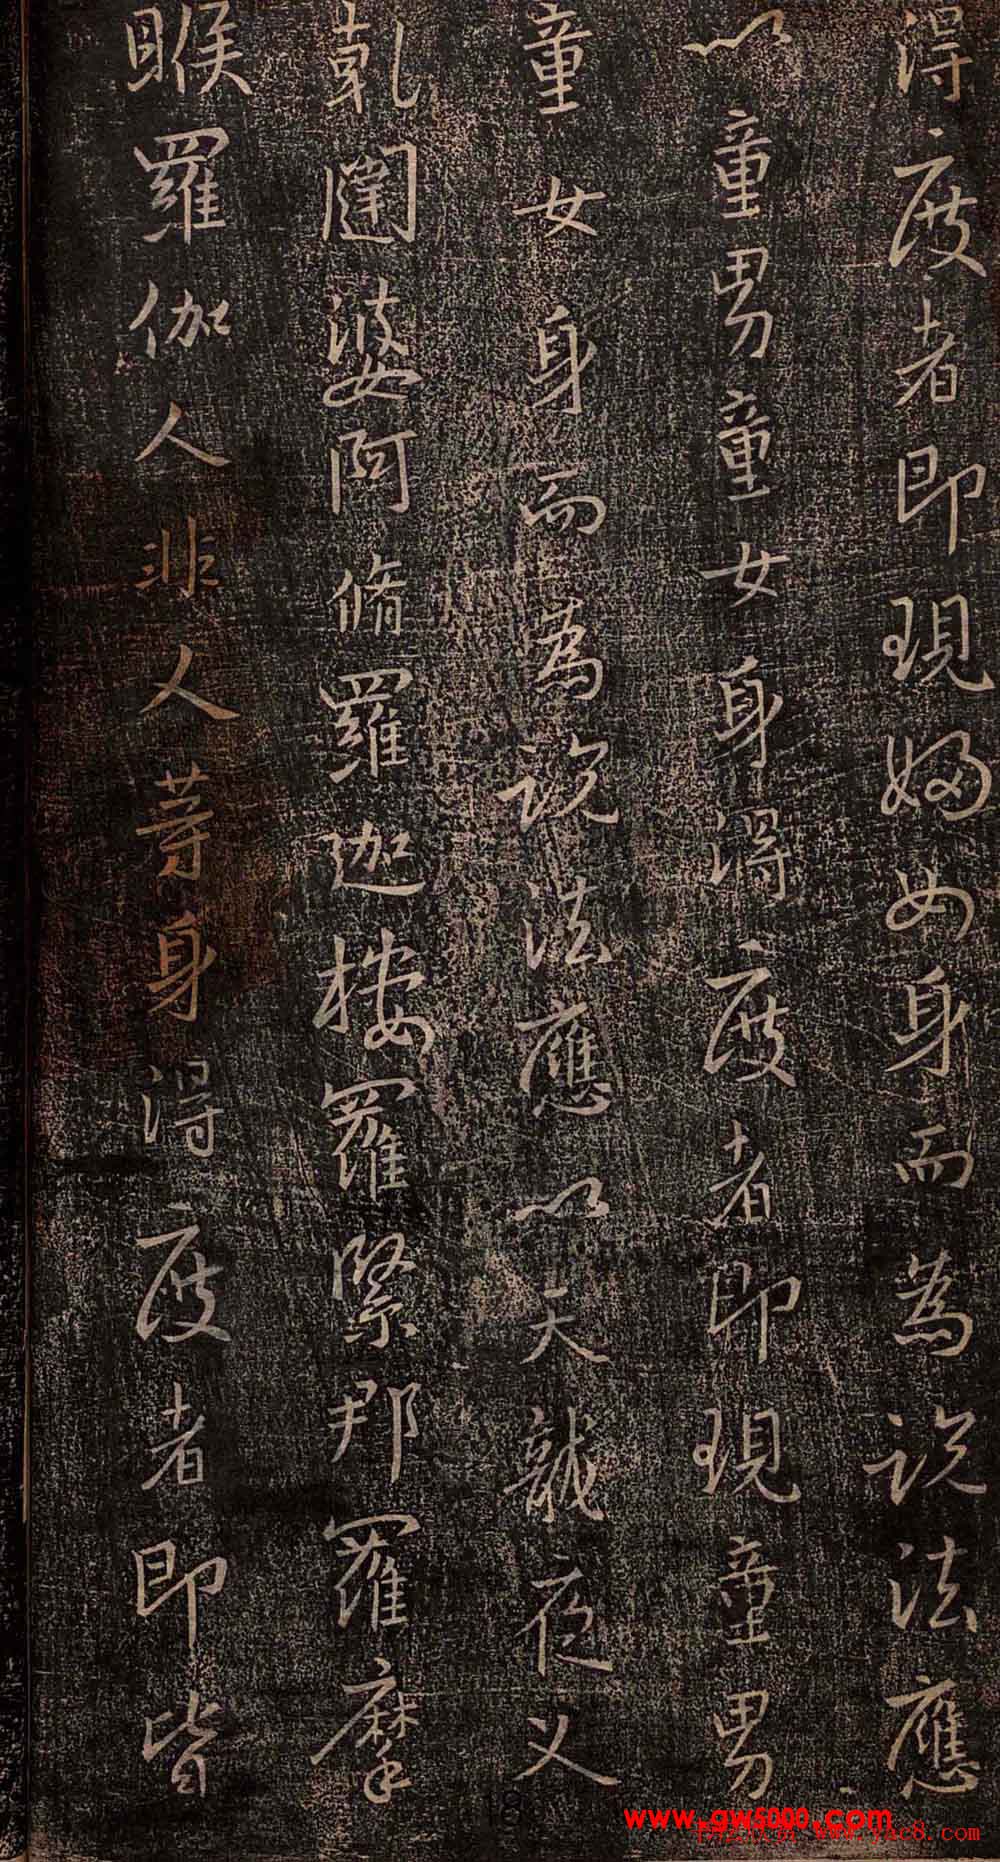 得度者即現婦女身而為說法應
以童男童女身得度者即現童男
童女身而為說法應以天龍夜叉
乾闥婆阿脩羅迦樓羅緊那羅摩
睺羅伽人非人等身得度者即皆
www.gw5000.com
www.yac8.com